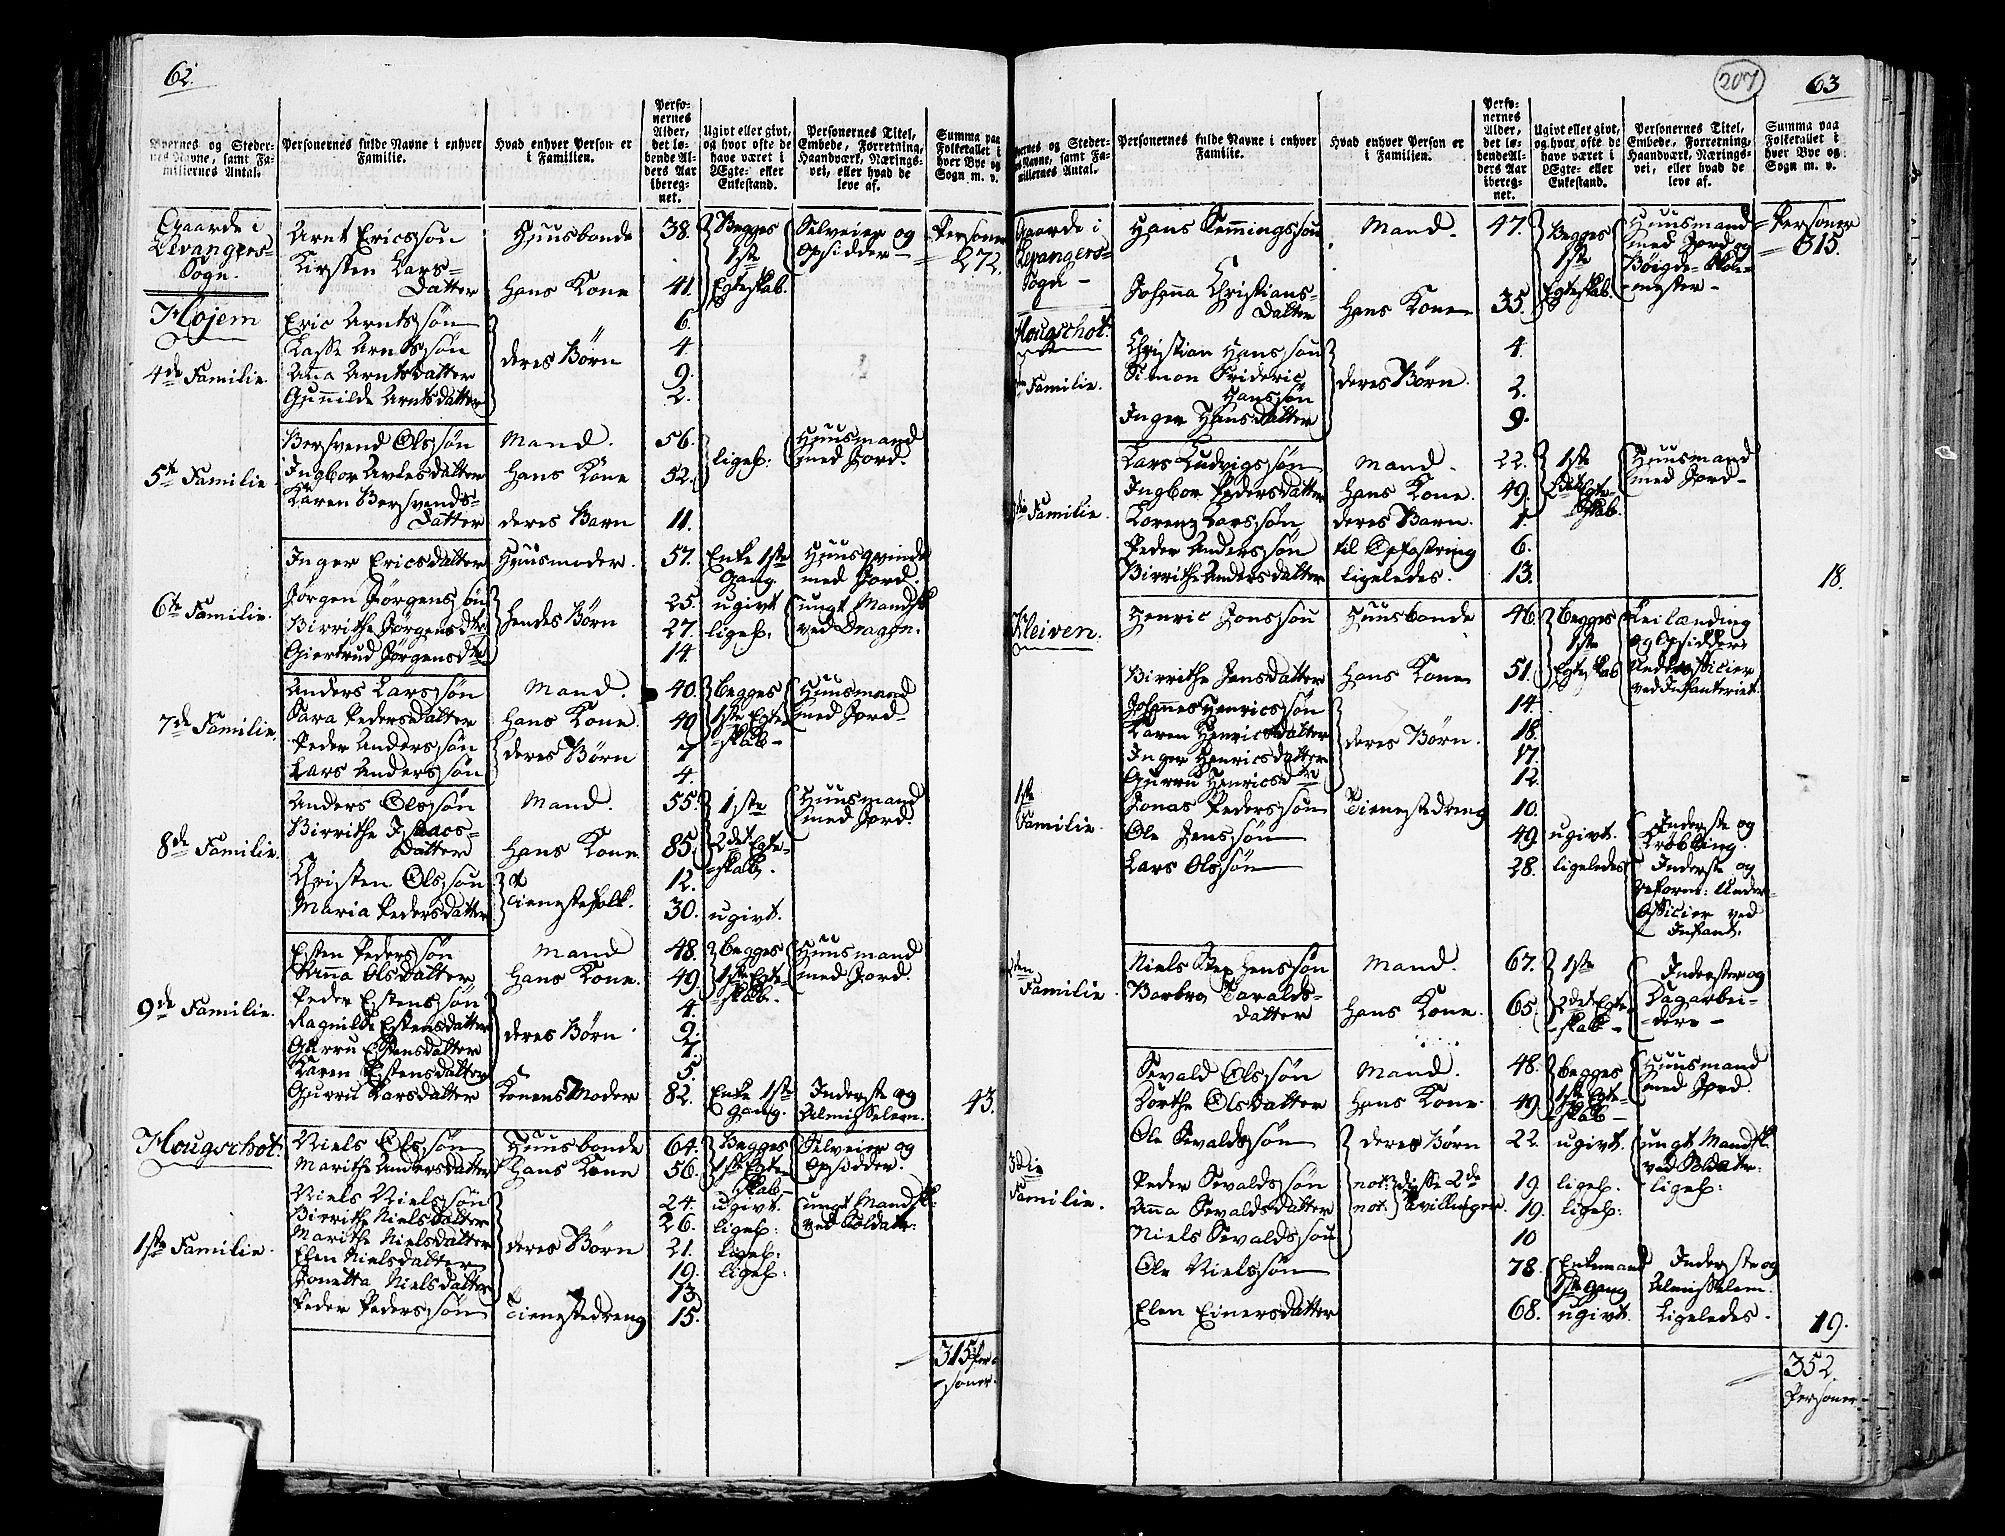 62.
Personernes fulde Navne i enhver Familie.
Hvad enhver Person er i Familien.
Personernes Alder, det løbende Alders Aar iberegnet.
Ugivt eller givt, og hvor ofte de have været i Ægte- eller Enkestand.
Personernes Titel, Embede, Forretning, Haandværk, Næringsvei, eller hvad de leve af.
Summa paa Folketallet i hver Bye og Sogn m. v.
Gaarde i Levangers Sogn. Personer 272.
Hojem
4de Familie.
Arnt Ericssøn Huusbonde 38. Begges 1ste Egteskab. Selveier og Opsidder
Kirsten Larsdatter hans Kone 41.
Eric Arntssøn deres Børn 6.
Lasse Arntssøn 4
Anna Arntsdatter 9.
Gunnilde Arntsdatter 2.
5te Familie
Bersvend Olssøn Mand. 56. ligel: Huusmand med Jord.
Ingbor Arlesdatter hans Kone 52.
Karen Bersvendsdatter deres Barn 11.
6te Familie.
Inger Ericsdatter Huusmoder. 57. Enke 1ste Gang Huusqvinde med Jord.
Jørgen Jørgenssøn hendes Børn 25. ugivt ungt Mandsk. ved Dragon.
Birrithe Jørgensdtr 27. ligel:
Giertrud Jørgensdtr 14.
7de Familie.
Anders Larssøn Mand. 40. begges 1ste Egteskab Huusmand med Jord
Sara Pedersdatter hans Kone. 40
Peder Anderssøn deres Børn 7
Lars Anderssøn 4.
8de Familie.
Anders Olssøn Mand. 55. 1ste Huusmand med Jord.
Birrithe Isaacsdatter hans Kone 85. 2det Egteskab.
Christen Olssøn 12.
Maria Pedersdatter Tienestefolk. 30. ugivt.
9de Familie.
Esten Pederssøn Mand 48. begges 1ste Egteskab. Huusmand med Jord.
Anna Olsdatter hans Kone. 49
Peder Estenssøn deres Børn 4.
Ragnilde Estensdatter 9.
Gurru Estensdatter 7.
Karen Estensdatter 5.
Gurru Larsdatter Konens Moder 82. Enke 1ste Gang. Inderste og Almisselem. 43.
Hougschot.
1ste Familie.
Niels Olssøn Huusbonde 64. Begges 1ste Egteskab Selveier og Opsidder.
Marithe Andersdatter hans Kone 56.
Niels Nielssøn deres Børn 24. ugivt. ungt Mandsk. ved Soldat.
Birrithe Nielsdatter 26. ligel:
Marithe Nielsdatter 21. ligel:
Elen Nielsdatter 19. ligel:
Jonetta Nielsdatter 13
Peder Pederssøn Tienestedreng 15.
315 Personer.
207
63
Personernes fulde Navne i enhver Familie.
Hvad enhver Person er i Familien.
Personernes Alder, det løbende Alders Aar iberegnet.
Ugivt eller givt, og hvor ofte de have været i Ægte- eller Enkestand.
Personernes Titel, Embede, Forretning, Haandværk, Næringsvei, eller hvad de leve af.
Summa paa Folketallet i hver Bye og Sogn m. v.
Gaarde i Levangers Sogn Personer 315.
Hougschot.
Familie.
Hans Hemmingssøn Mand. 47. Begges 1ste Egteskab. Huusmand med Jord og Bøigde-Skolemester
Johanna Christiansdatter hans Kone 35.
Christian Hanssøn deres Børn. 4.
Simon Frideric Hanssøn 2.
Inger Hansdatter 9.
Familie.
Lars Ludvigssøn Mand. 22. 1ste Huusmand med Jord
Ingbor Pedersdatter hans Kone. 49. 2det Egteskab.
Lorenz Larssøn deres Barn. 1.
Peder Anderssøn til Opfostring 6.
Birrithe Andersdatter ligeledes. 13. 18.
Kleiven.
1ste Familie.
Henric Jonssøn Huusbonde 46. begges 1ste Egteskab Leilænding og Opsidder Underofficier ved Infanteriet.
Birrithe Jensdatter hans Kone 51.
Johannes Henricssøn deres Børn. 14.
Karen Henricsdatter 18.
Inger Henricsdatter 17.
Gurru Henricsdtr 12
Jonas Pederssøn Tienestedreng 10.
Ole Jenssøn 49. ugivt. Inderste og Krøbling.
Lars Olssøn 28. ligeledes Inderste og reform: Underofficier ved Infant.
Familie.
Niels Stephenssøn Mand. 67. 1ste Inderster og Dagarbeidere
Barbro Taraldsdatter hans Kone. 65. 2det Egteskab
3die Familie.
Sevald Olssøn Mand. 48. begges 1ste Egteskab Huusmand med Jord.
Dorthe Olsdatter hans Kone. 49.
Ole Sevaldssøn deres Børn 22. ugivt. ungt Mandsk. ved Soldater:
Peder Sevaldssøn not: disse 2de 19 ligel. ligel:
Anna Sevaldsdatter not. Tvillinger 19. ligel:
Niels Sevaldssøn 10
Ole Nielssøn 78. Enkemand 1ste Gang Inderste og Almisselem.
Elen Einersdatter 68. ugivt. Ligeledes. 19.
352 Personer